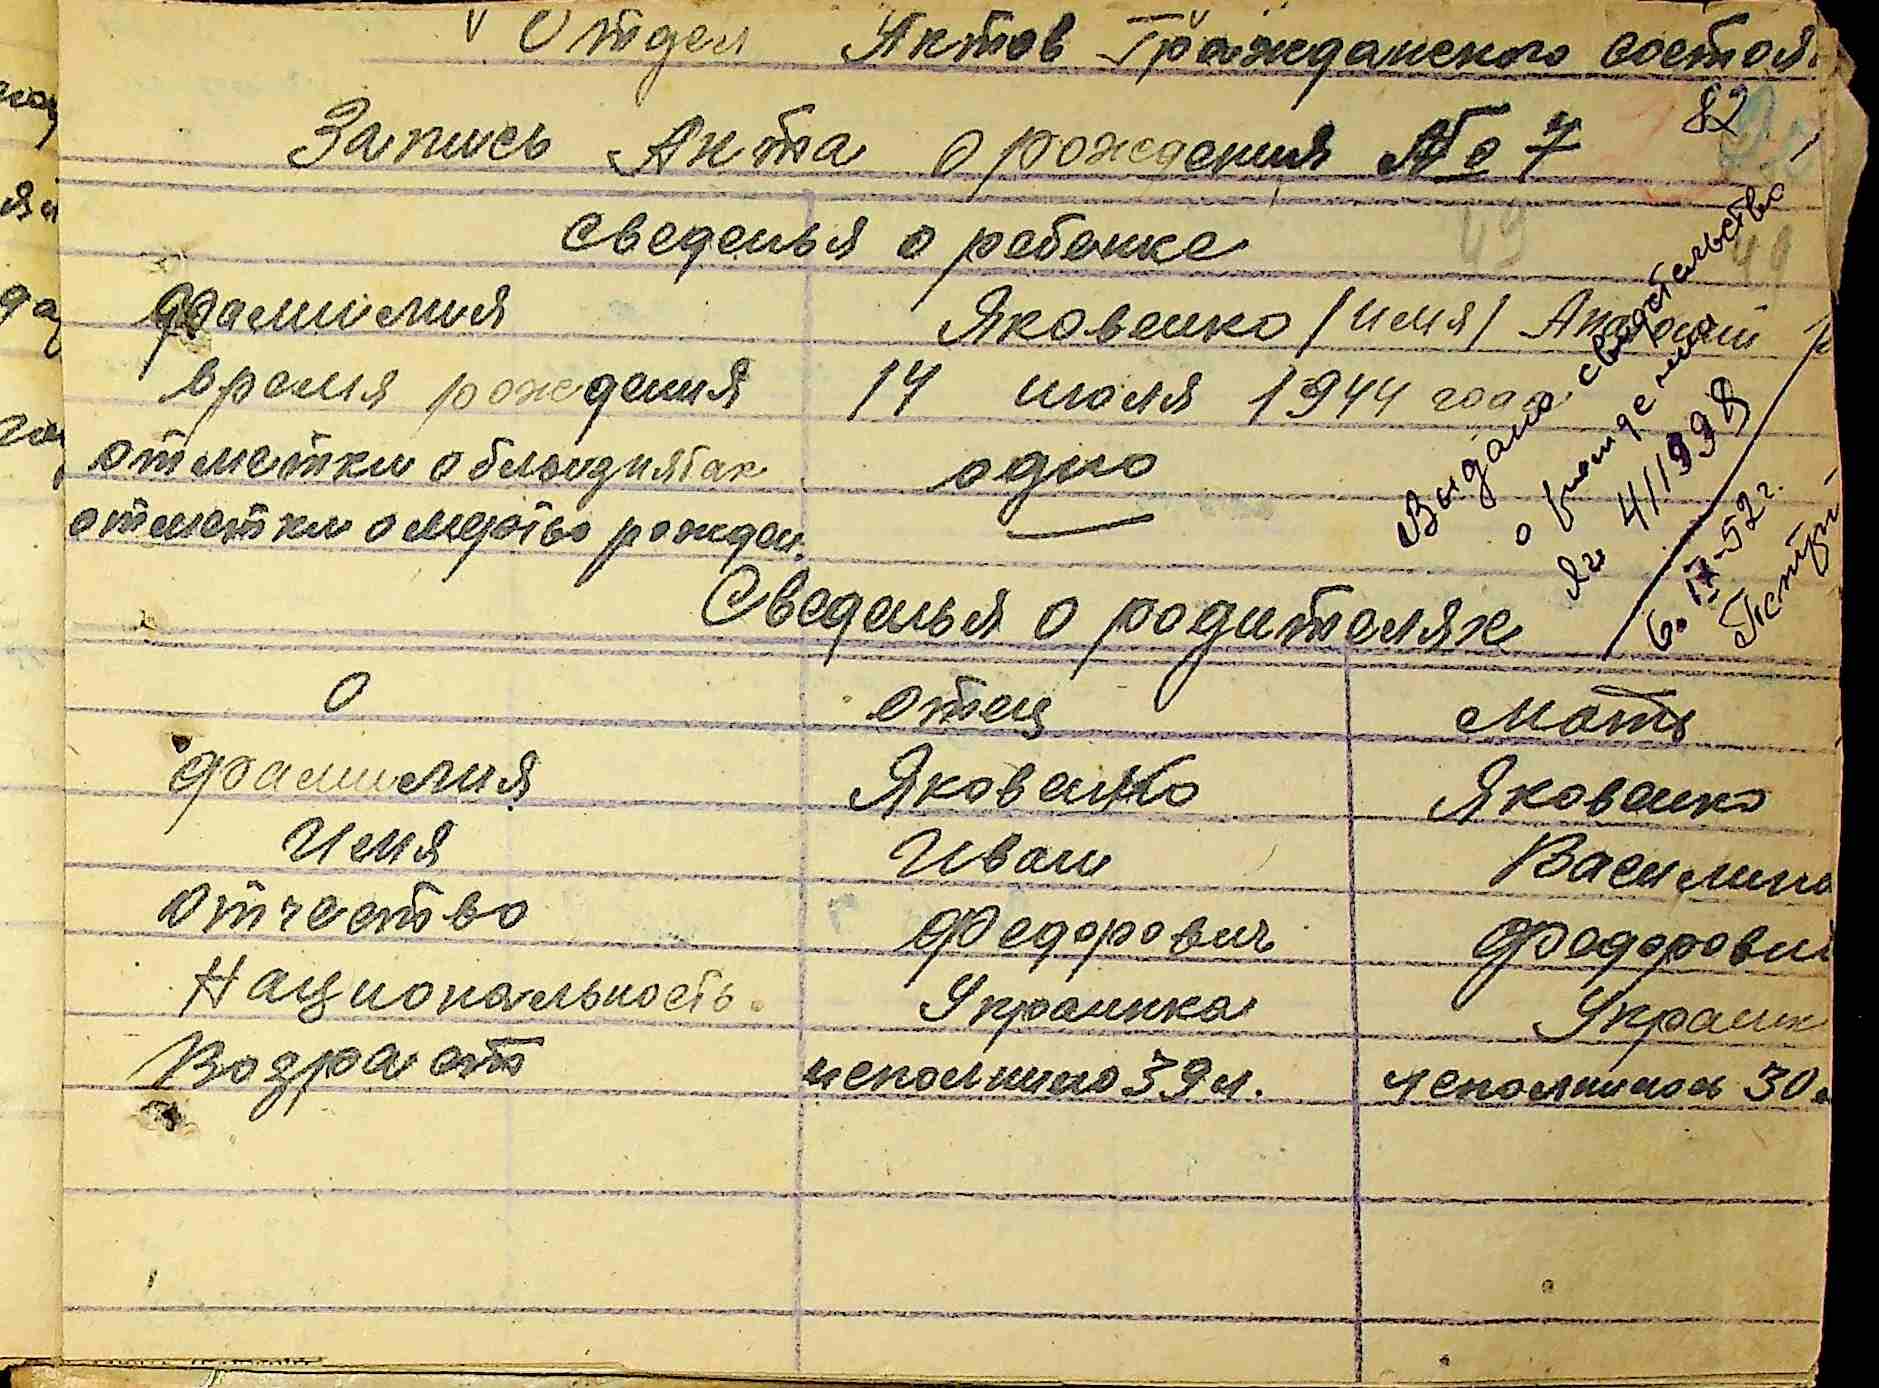 Отдел Актов Гражданского состоя
82
Запись Акта о рождения № 7
сведенья о ребенке
49
фамилия Яковенко /имя/ Анатолий
время рождения 14 июля 1944 года
отметки о близнятах одно
отметки о мертво рожден. —
Сведенья о родителях
Выдано свидетельство
о
яг 411998
6. IX-52 г.
О отец мать
фамилия Яковенко Яковенко
Имя Иван Василина
Отчество Федорович Федорови
Национальность. Украинка Украинк
Возраст исполнино 39 л. исполнилось 30 л